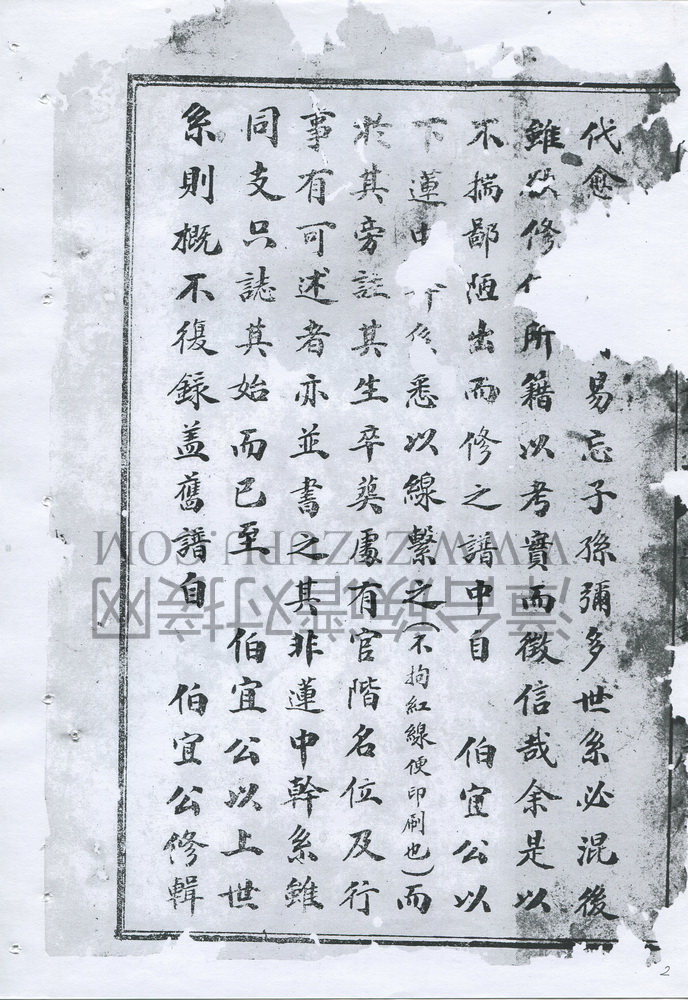 代愈易忘子孫彌多世系必混後
雖欲修所籍以考實而徵信哉余是以
不揣鄙陋出而修之譜中自 伯宜公以
下蓮中悉以線繫之(不拘紅線便印刷也)而
於其旁註其生卒葬處有官階名位及行
事有可述者亦並書之其非蓮中幹系雖
同支只誌其始而已至 伯宜公以上世
系則概不復錄盖舊譜自 伯宜公修輯
WWW.ZTZUPU.COM
漳台族譜对接网
2